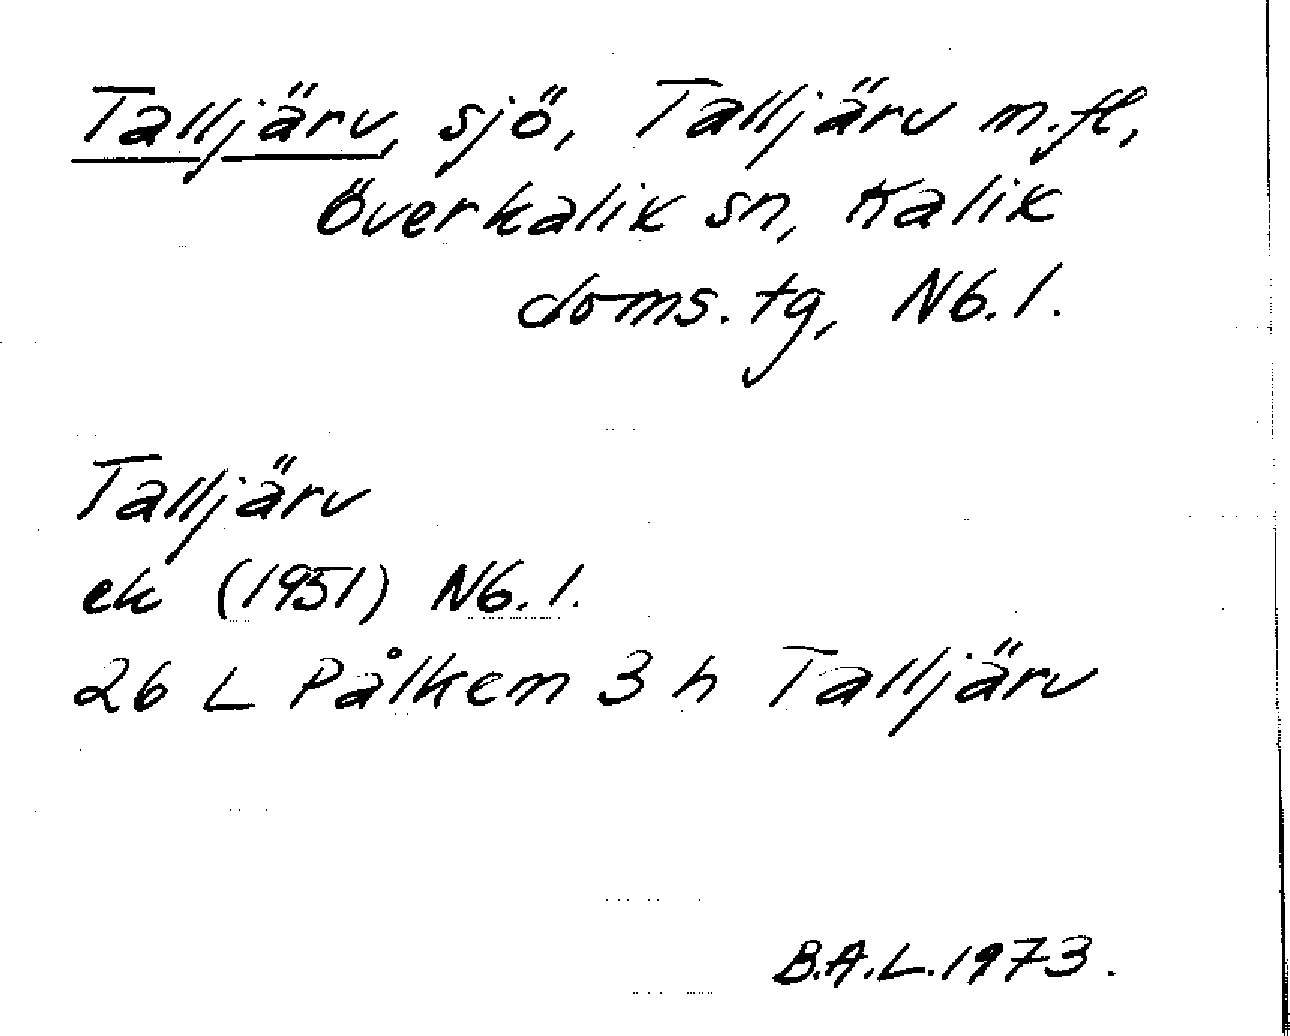 Talljärv, sjö, Talljärv m.fl,
Överkalix sn, Kalix
doms. tg, Nb. l.
Talljärv
ek (1951) Nb. l.
26 L Pålkem 3 h Talljärv
B.A.L. 1973.